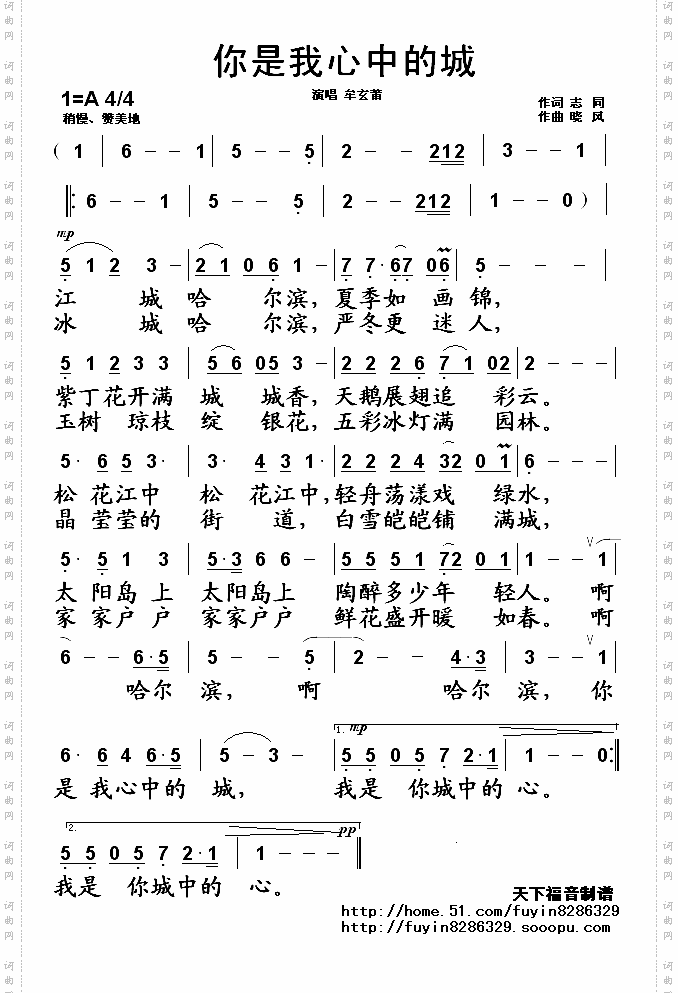 你是我心中的城
1=A 4/4
演唱 牟玄莆
稍慢、赞美地
作词 志 同
作曲 晓 风
( 1 | 6 - - 1 | 5 - - 5 | 2 - - 212 | 3 - - 1 |
‖: 6 - - 1 | 5 - - 5 | 2 - - 212 | 1 - - 0 ) |
mp
5 1 2 3 - | 2 1 0 6 1 - | 7 7· 67 06 | 5 - - - |
江 城 哈 尔滨，夏季如 画 锦，
冰 城 哈 尔滨，严冬更 迷 人，
5 1 2 3 3 | 5 6 05 3 - | 2 2 2 6 7 1 02 | 2 - - - |
紫丁花开满 城 城香，天鹅展翅追 彩云。
玉树 琼枝 绽 银花，五彩冰灯满 园林。
5· 6 5 3· | 3· 4 3 1· | 2 2 2 4 32 0 1 | 6 - - - |
松 花江中 松 花江中，轻舟荡漾戏 绿水，
晶 莹莹的 街 道，白雪皑皑铺 满城，
5· 5 1 3 | 5·3 6 6 | 5 5 5 1 72 0 1 | 1 - - V 1 |
太 阳岛 上 太阳岛上 陶醉多少年 轻人。啊
家 家户 户 家家户户 鲜花盛开暖 如春。啊
6 - - 6·5 | 5 - - 5 | 2 - - 4·3 | 3 - - V 1 |
哈尔 滨， 啊 哈尔 滨，你
6· 6 4 6·5 | 5 - 3 - | 1. mp 5 5 0 5 7 2·1 | 1 - - 0 :‖
是 我心中的 城， 我是 你城中的 心。
2. pp
5 5 0 5 7 2·1 | 1 - - - ‖
我是 你城中的 心。
天下福音制谱
http://home.51.com/fuyin8286329
http://fuyin8286329.sooopu.com